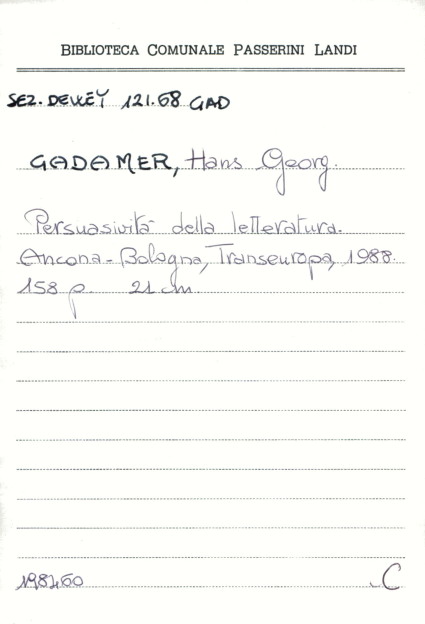 BIBLIOTECA COMUNALE PASSERINI LANDI
SEZ. DEWEY 121.68 GAD
GADAMER, Hans Georg.
Persuasività della letteratura.
Ancona-Bologna, Transeuropa, 1988.
158 p. 21 cm.
198460
C